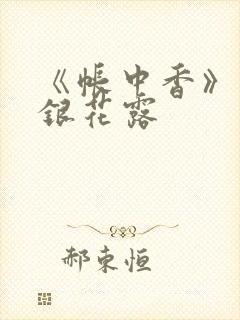 《帐中香》
银花露
郝东恒